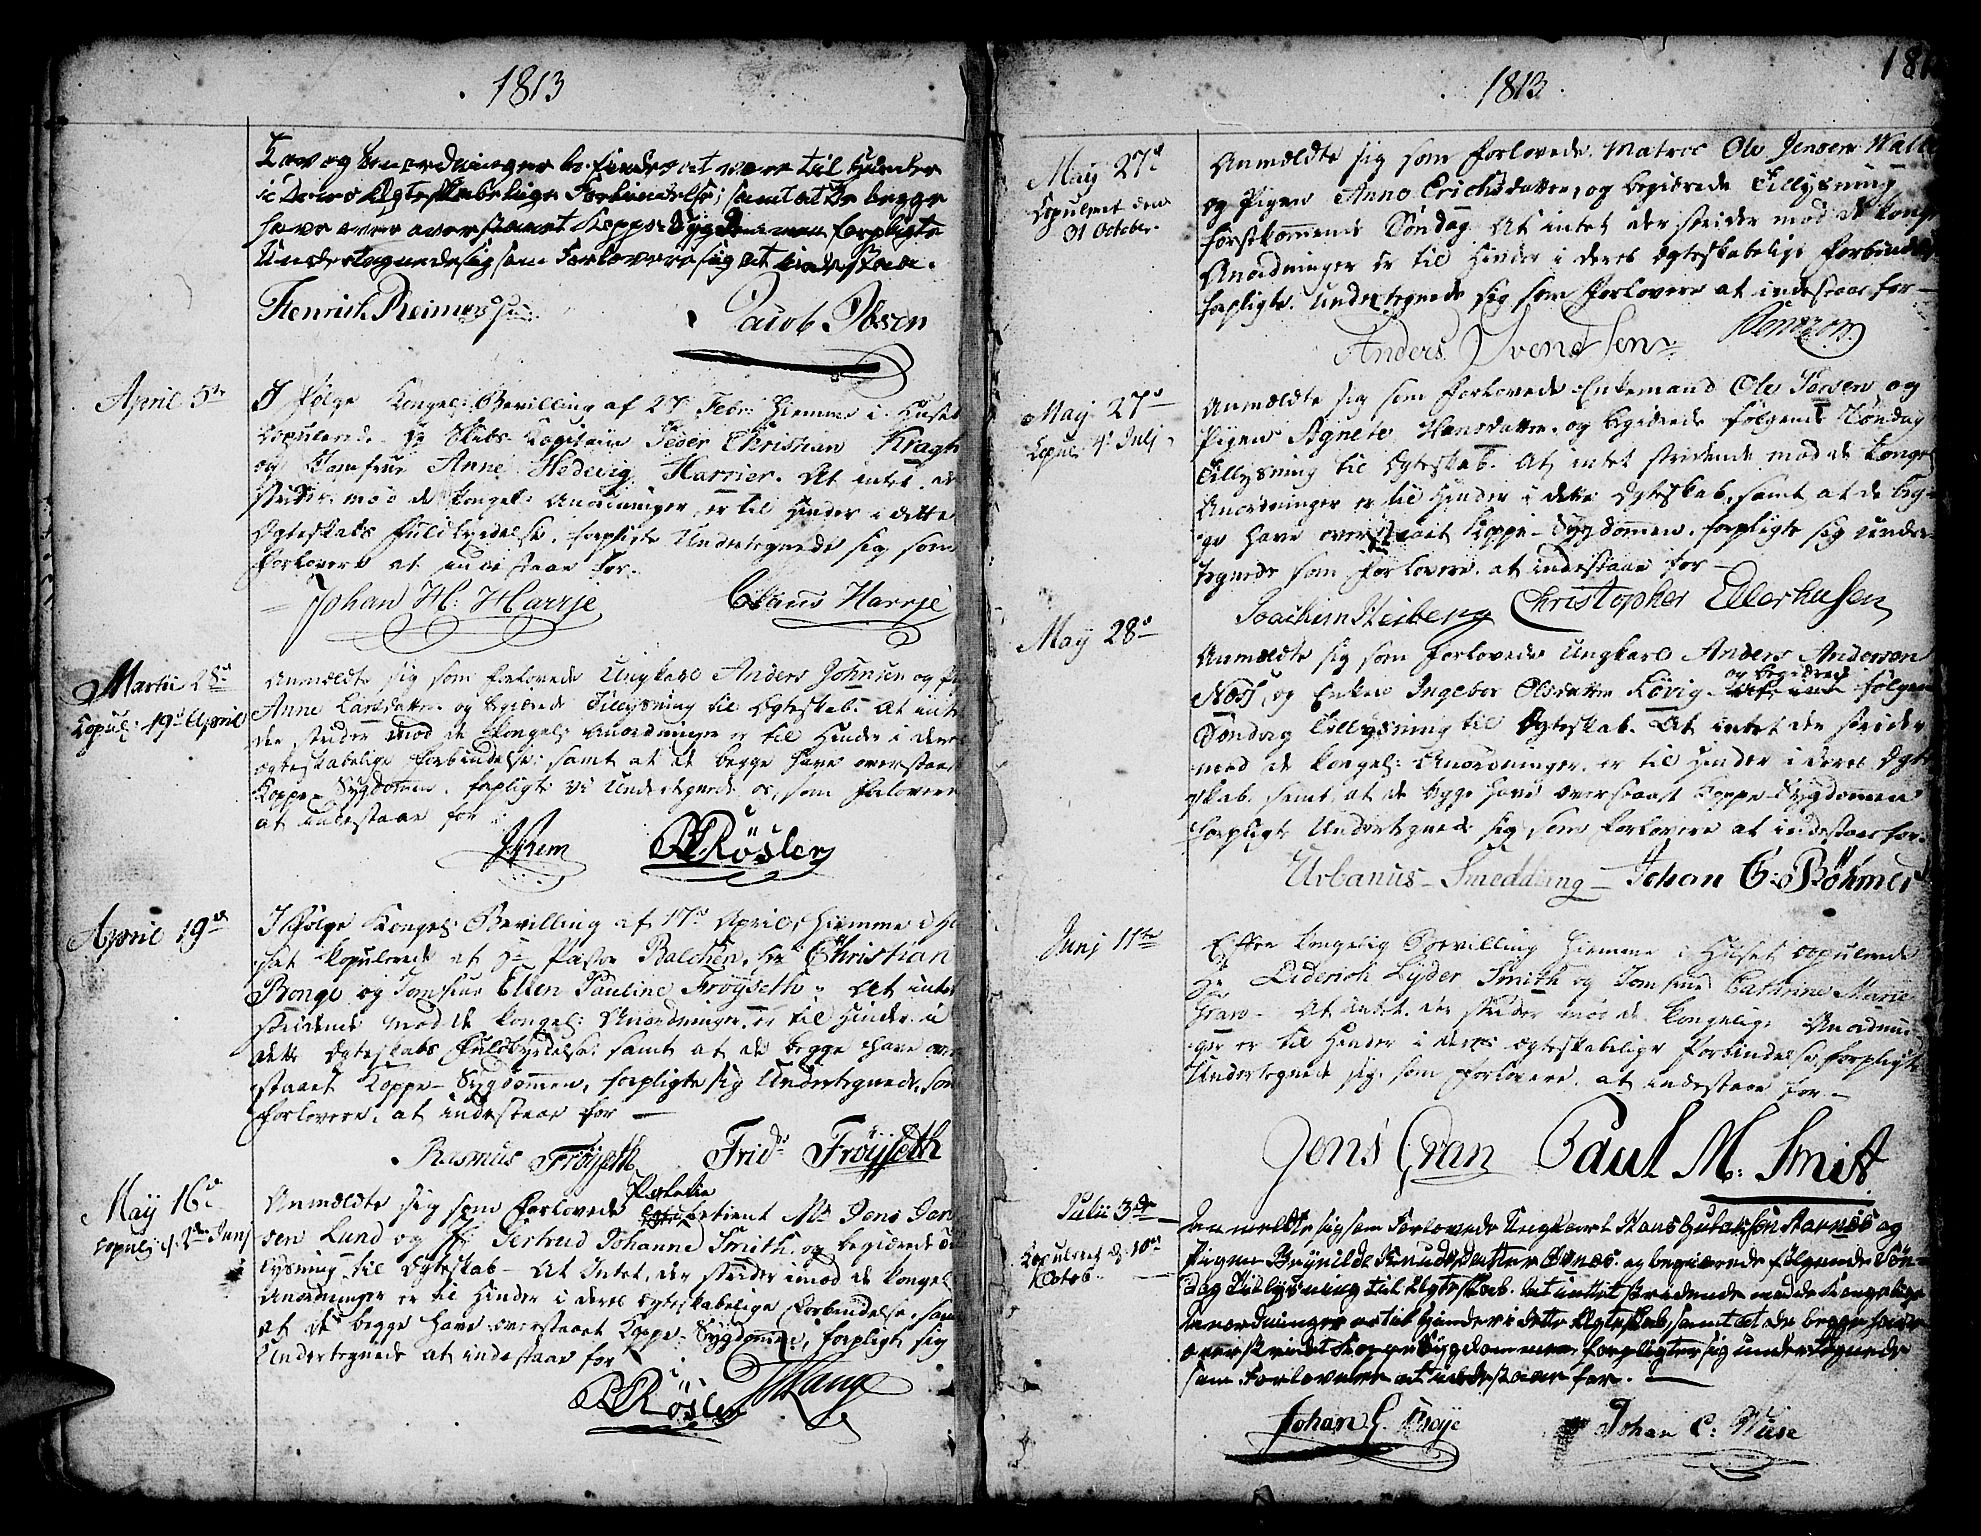 1813
Lov og Anordninger befindes at være til Hinder
i Deres Ægteskabelige Forbindelse; samt at De begge
have overstaaet Koppe-Sygdommen forpligte
Undertegnede sig som Forlovere sig at indestaa.
Henrich Reimers Jacob Ibsen
April 5te
I Følge Kongel: Bevilling af 27 Febr: hiemme i Huset
Copulerede Hr Skibs-Capitain Peder Christian Kragh
og Jomfrue Anne Hedevig Harrier. At intet, der
strider mod de Kongel: Anordninger, er til Hinder i dette
Ægteskabs Fuldbyrdelse, forpligte Undertegnede sig som
Forlovere at indestaae for.
Johan H: Harrje Claus Harrje
Martii 28de
Copul: 19de April
Anmældte sig som forlovede Ungkarl Anders Johnsen og Pigen
Anne Larsdatter og begiærede Tillysning til Ægteskab. At intet
der strider mod de Kongel: Anordninger er til Hinder i deres
Ægteskabelige Forbindelse samt at de begge have overstaaet
Koppe-Sygdommen, forpligte vi Undertegnede os, som Forlovere
at indestaae for
Rösler
April 19de
I Følge Kongel: Bevilling af 17de April, hiemme i Hu-
set Copulerede af Hr Pastor Balchen, Hr Christian
Bonge og Jomfrue Ellen Pauline Frøyseth. At intet
stridende mod de Kongel: Anordninger er til Hinder i
dette Ægteskabs Fuldbyrdelse, samt at de begge have over-
staaet Koppe-Sygdommen, forpligte sig Undertegnede, som
Forlovere, at indestaae for —
Rasmus Frøyseth Frid: Frøysseth
May 16de
Copul: 4de Junj
Anmældte sig som Forlovede Politie
betient Mr Jens Jan-
sen Lund og Jfr Gertrud Johanne Smith og begiærede Til-
lysning til Ægteskab — At Intet, der strider imod de Kongel:
Anordninger er til Hinder i deres Ægteskabelige Forbindelse, samt
at de begge have overstaaet Koppe-Sygdommen, forpligte sig
Undertegnede at indestaae for
Rösler Lange
1813.
181
May 27de
Copuleret den
31 October.
Anmældte sig som forlovede Matros Ole Jensen Walle
og Pigen Anne Erichsdatter, og begiærede Tillysning
førstkommende Søndag. At intet der strider mod de Kongel:
Anordninger er til Hinder i deres Ægteskabelige Forbindelse
forpligte Undertegnede sig som Forlovere at indestaae for —
Anders Svendsen
May 27de
Copul: 4de Julj
Anmældte sig som forlovede Enkemand Ole Larsen og
Pigen Agnete Hansdatter og begiærede følgende Søndag
Tillysning til Ægteskab. At intet stridende mod de Kongel:
Anordninger er til Hinder i dette Ægteskab, samt at de beg-
ge have overstaaet Koppe-Sygdommen, forpligte sig under-
tegnede som Forlovere at indestaae for —
Joachim Heiberg Christopher Ellerhusen
May 28de
Anmældte sig som forlovede Ungkarl Anders Andersen
og begiærede
Næss, og Enken Ingebor Olsdatter Røvig følgende
Søndag Tillysning til Ægteskab. At intet der strider
mod de Kongel: Anordninger er til Hinder i deres Ægte-
skab samt, at de begge have overstaaet Koppe-Sygdommen
forpligte Undertegnede sig som Forlovere at indestaae for.
Urbanus Smedding — Johan G: Böhmer
Junj 11te
Efter Kongelig Bevilling hiemme i Huset Copulerede
Hr Liderich Lyder Smith og Jomfrue Cathrine Marie
Gran — At intet der strider mod de Kongelige Anordnin-
ger er til Hinder i deres Ægteskabelige Forbindelse, forpligte
Undertegnede sig som Forlovere at indestaae for —
Jens Gran Paul M. Smitt
Julii 3de
Copuleret d: 10de
Octob.
Anmeldte sig som Forlovede Ungkarl Hans Gulaksson Aarnæs og
Pigen Brynilde Knudsdatter Bønæs og begiærede følgende Søn-
dag Tillysning til Ægteskab. At intet stridende mod de Kongelige
Anordninger er til Hinder i dette Ægteskab samt at de begge have
overstaaet Koppe Sygdommen, forpligter sig undertegnede
som Forlovere at indestaae for.
Johan G. Krøije Johan C: Wiese